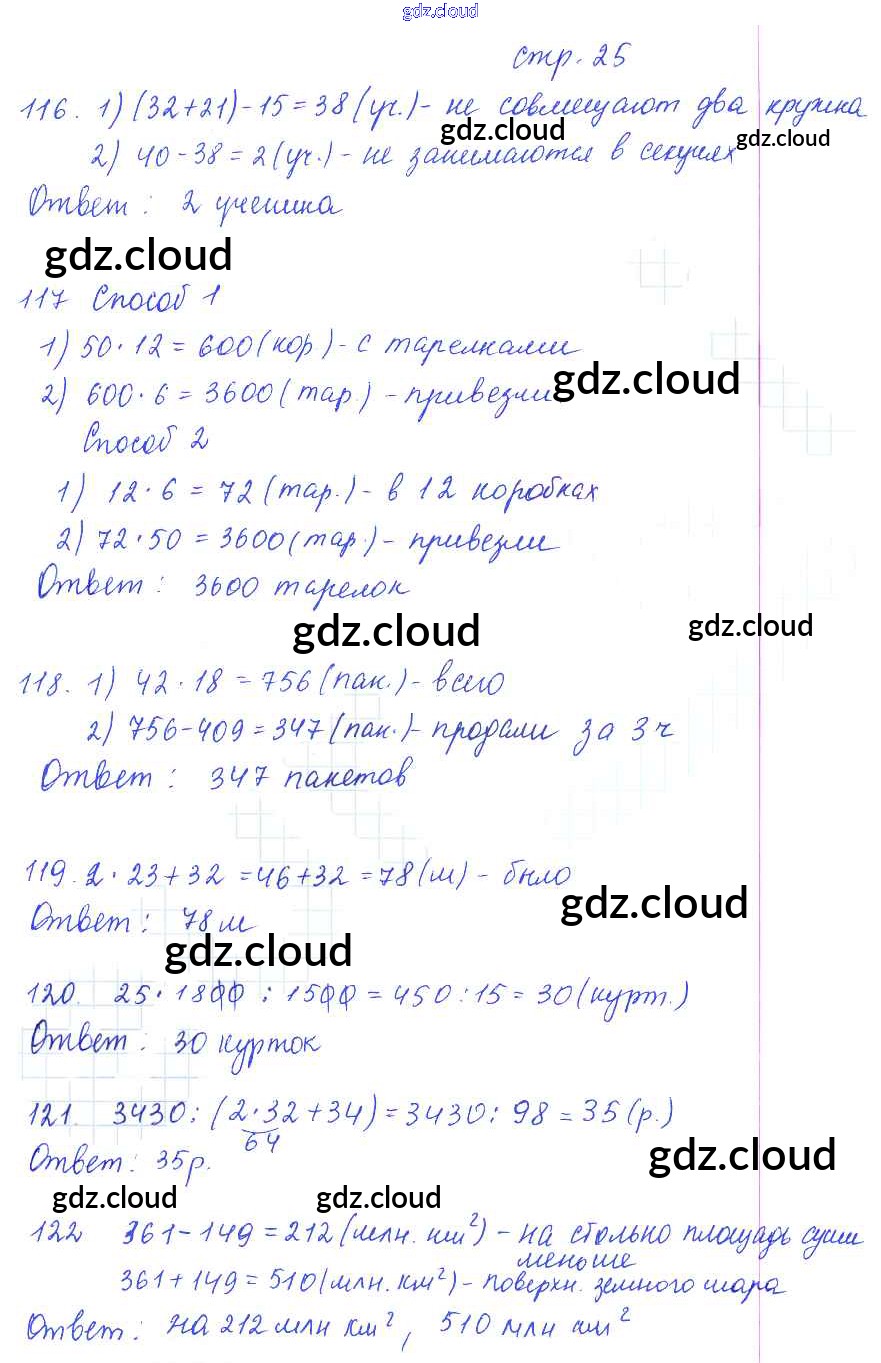 gdz.cloud
стр. 25
116. 1) (32+21)-15=38 (уч.)- не совмещают два кружка
gdz.cloud gdz.cloud
2) 40-38=2 (уч.)- не занимаются в секциях
Ответ: 2 ученика
gdz.cloud
117 Способ 1
1) 50·12=600 (кор)- с тарелками
2) 600·6=3600 (тар.) - привезли
gdz.cloud
Способ 2
1) 12·6=72 (тар.)- в 12 коробках
2) 72·50=3600 (тар.)- привезли
Ответ: 3600 тарелок
gdz.cloud gdz.cloud
118. 1) 42·18=756 (пак.)- всего
2) 756-409=347 (пак.)- продали за 3ч
Ответ: 347 пакетов
119. 2·23+32=46+32=78 (м) - было
gdz.cloud
Ответ: 78 м
gdz.cloud
120. 25·1800:1500=450:15=30 (курт.)
Ответ: 30 курток
121. 3430:(2·32+34)=3430:98=35 (р.)
64
Ответ: 35р.
gdz.cloud
gdz.cloud gdz.cloud
122 361-149=212 (млн. км²)- на столько площадь суши
меньше
361+149=510 (млн. км²)- поверхн. земного шара
Ответ: на 212 млн км², 510 млн км²